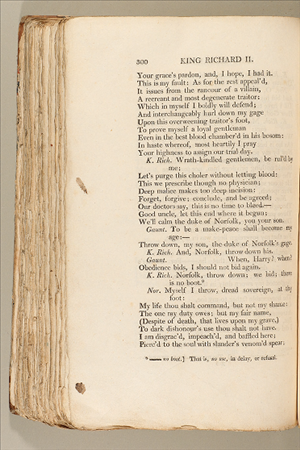 300 KING RICHARD II.
Your grace's pardon, and, I hope, I had it.
This is my fault: As for the rest appeal'd,
It issues from the rancour of a villain,
A recreant and most degenerate traitor:
Which in myself I boldly will defend;
And interchangeably hurl down my gage
Upon this overweening traitor's foot,
To prove myself a loyal gentleman
Even in the best blood chamber'd in his bosom:
In haste whereof, most heartily I pray
Your highness to assign our trial day.
K. Rich. Wrath-kindled gentlemen, be rul'd by
me;
Let's purge this choler without letting blood:
This we prescribe though no physician;
Deep malice makes too deep incision:
Forget, forgive; conclude, and be agreed;
Our doctors say, this is no time to bleed.—
Good uncle, let this end where it begun;
We'll calm the duke of Norfolk, you your son.
Gaunt. To be a make-peace shall become my
age:—
Throw down, my son, the duke of Norfolk's gage.
K. Rich. And, Norfolk, throw down his.
Gaunt. When, Harry? when?
Obedience bids, I should not bid again.
K. Rich. Norfolk, throw down; we bid; there
is no boot.⁹
Nor. Myself I throw, dread sovereign, at thy
foot:
My life thou shalt command, but not my shame:
The one my duty owes; but my fair name,
(Despite of death, that lives upon my grave,)
To dark dishonour's use thou shalt not have.
I am disgrac'd, impeach'd, and baffled here;
Pierc'd to the soul with slander's venom'd spear;
⁹ —— no boot.] That is, no use, in delay, or refusal.